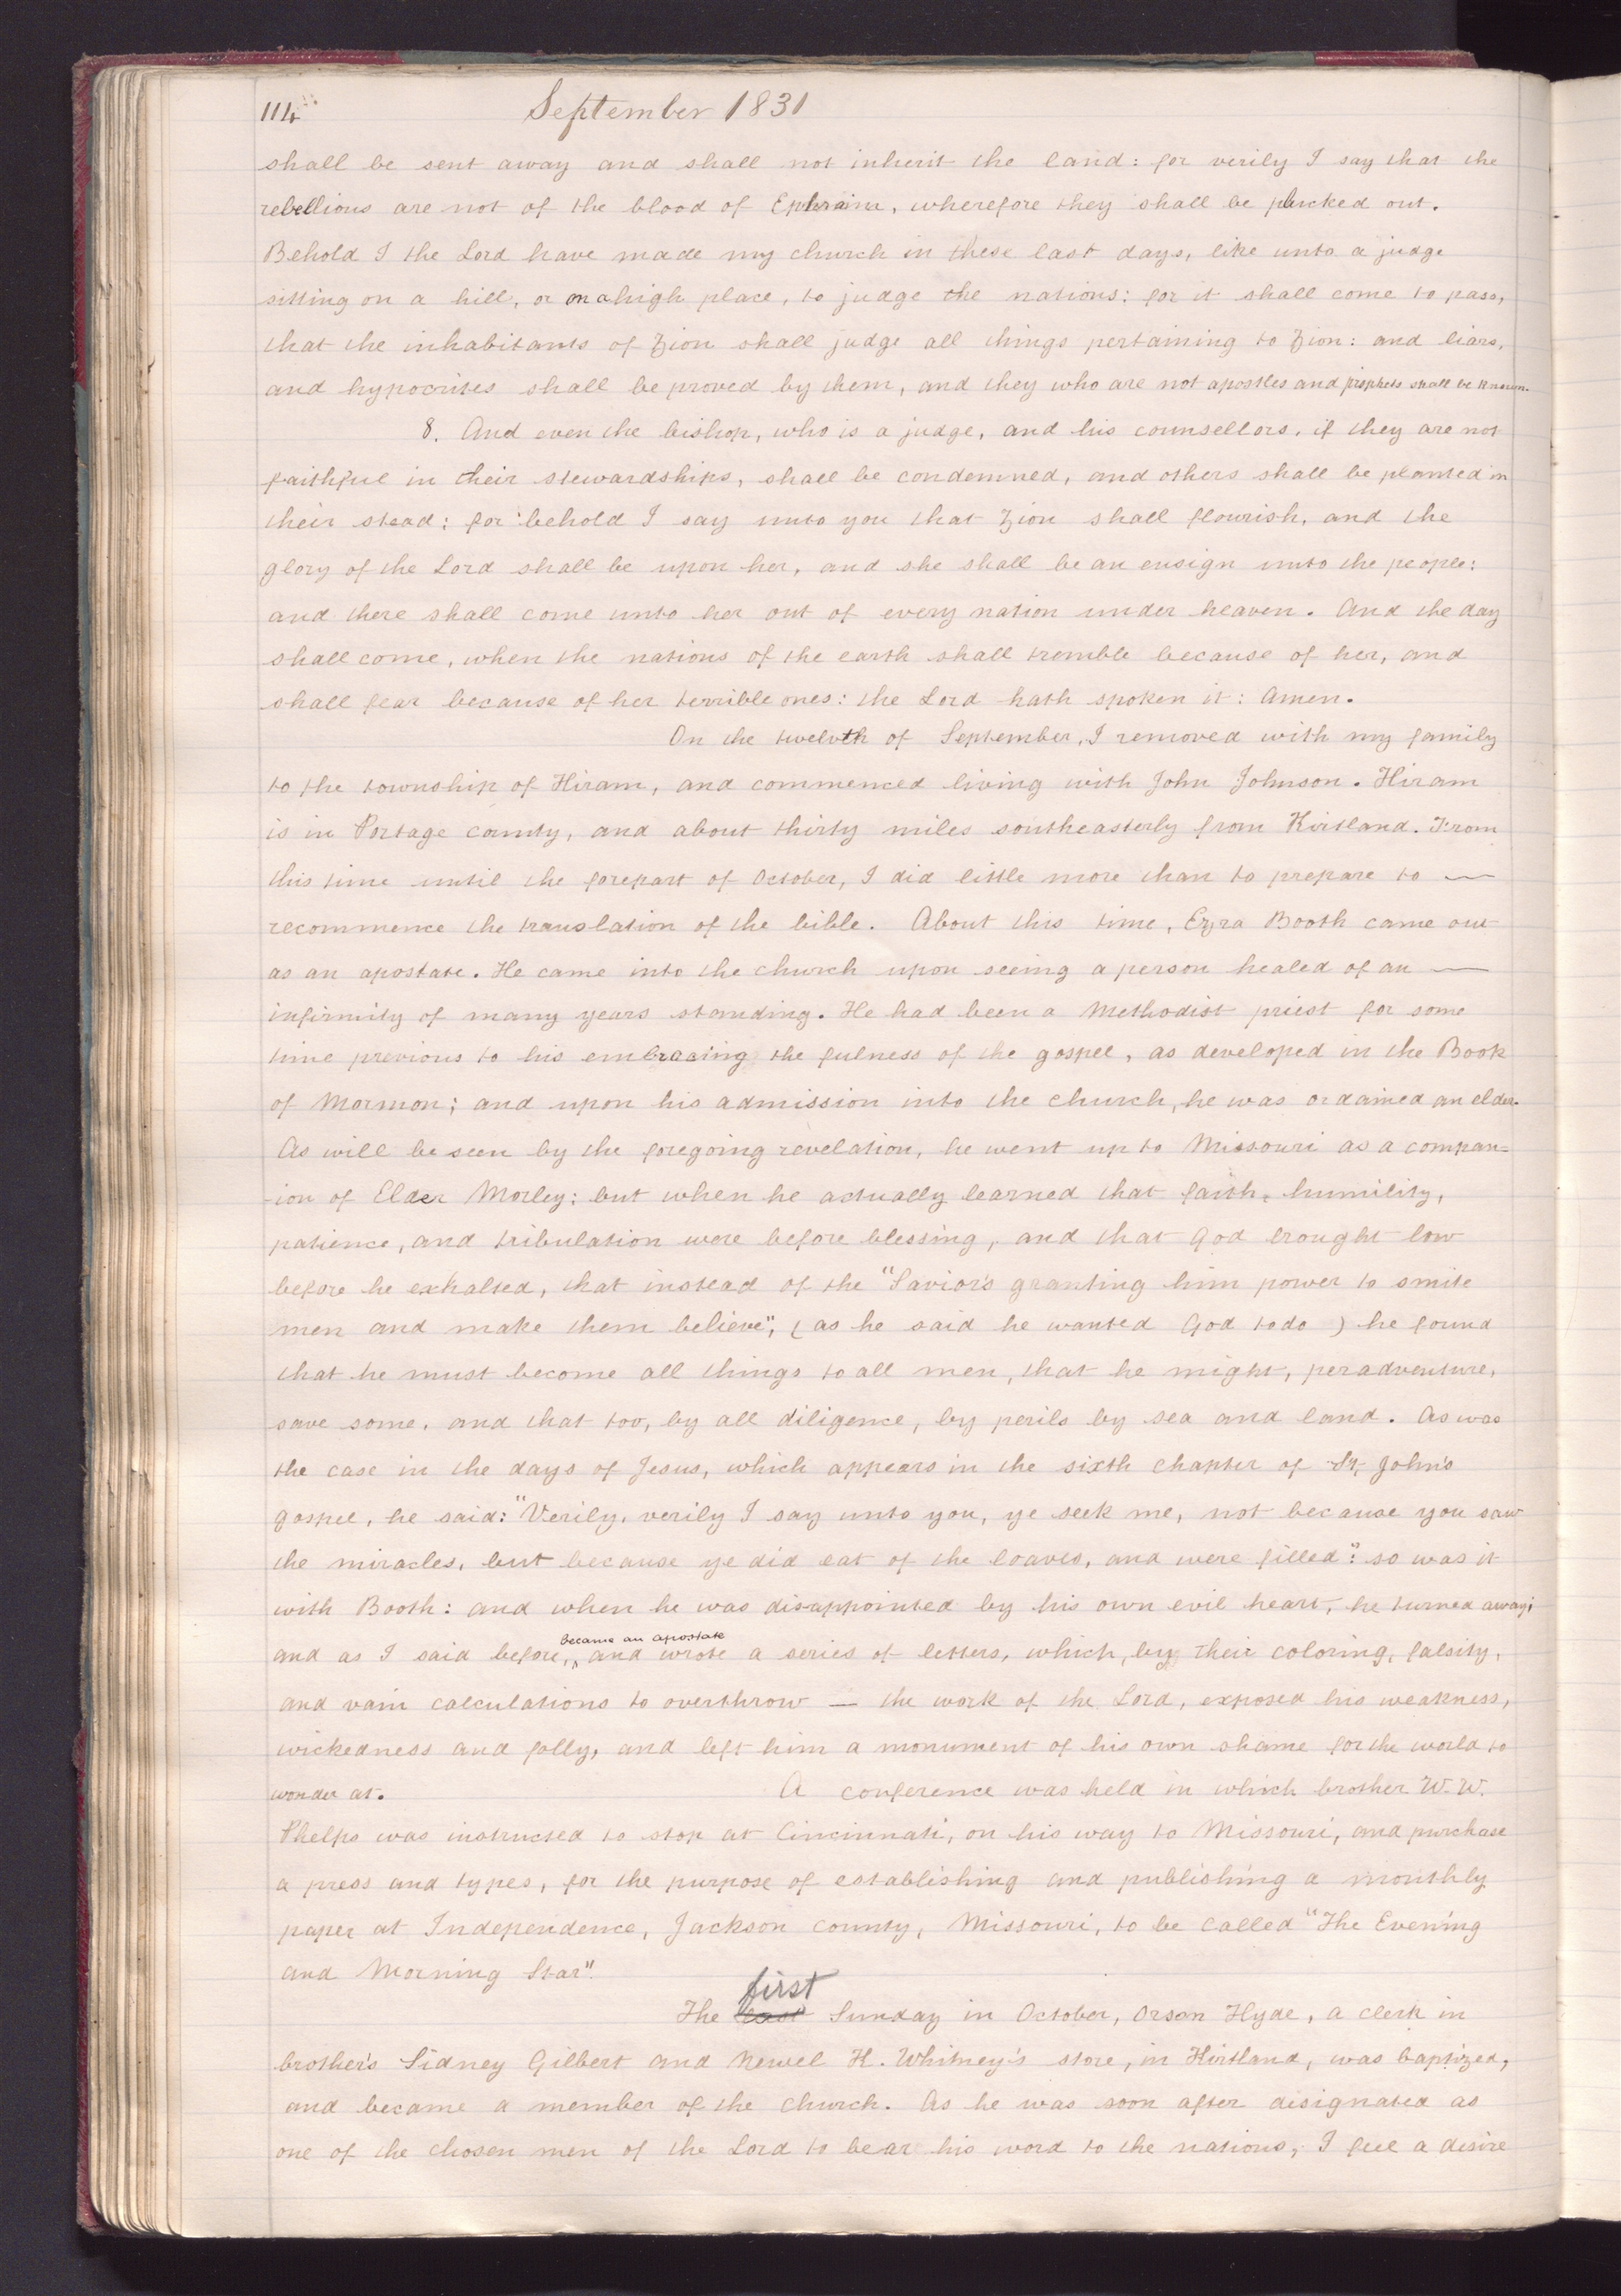 114 September 1831
shall be sent away and shall not inherit the land: for verily I say that the
rebellious are not of the blood of Ephraim, wherefore they shall be plucked out.
Behold I the Lord have made my church in these last days, like unto a judge
sitting on a hill, or on a high place, to judge the nations: for it shall come to pass,
that the inhabitants of Zion shall judge all things pertaining to Zion: and liars,
and hypocrites shall be proved by them, and they who are not apostles and prophets shall be known.
8. And even the bishop, who is a judge, and his counsellors, if they are not
faithful in their stewardships, shall be condemned, and others shall be planted in
their stead: for behold I say unto you that Zion shall flourish, and the
glory of the Lord shall be upon her, and she shall be an ensign unto the people:
and there shall come unto her out of every nation under heaven. And the day
shall come, when the nations of the earth shall tremble because of her, and
shall fear because of her terrible ones: the Lord hath spoken it: Amen.
On the twelvth of September, I removed with my family
to the township of Hiram, and commenced living with John Johnson. Hiram
is in Portage county, and about thirty miles southeasterly from Kirtland. From
this time until the forepart of October, I did little more than to prepare to —
recommence the translation of the bible. About this time, Ezra Booth came out
as an apostate. He came into the church upon seeing a person healed of an —
infirmity of many years standing. He had been a Methodist priest for some
time previous to his embracing the fulness of the gospel, as developed in the Book
of Mormon; and upon his admission into the church, he was ordained an elder.
As will be seen by the foregoing revelation, he went up to Missouri as a compan=
-ion of Elder Morley: but when he actually learned that faith, humility,
patience, and tribulation were before blessing, and that God brought low
before he exhalted, that instead of the "Savior's granting him power to smite
men and make them believe", (as he said he wanted God to do) he found
that he must become all things to all men, that he might, peradventure,
save some, and that too, by all diligence, by perils by sea and land. As was
the case in the days of Jesus, which appears in the sixth chapter of St, John's
gospel, he said: "Verily, verily I say unto you, ye seek me, not because you saw
the miracles, but because ye did eat of the loaves, and were filled": so was it
with Booth: and when he was disappointed by his own evil heart, he turned away;
became an apostate
and as I said before, and wrote a series of letters, which, by their coloring, falsity,
and vain calculations to overthrow — the work of the Lord, exposed his weakness,
wickedness and folly, and left him a monument of his own shame for the world to
wonder at. A conference was held in which brother W. W.
Phelps was instructed to stop at Cincinnati, on his way to Missouri, and purchase
a press and types, for the purpose of establishing and publishing a monthly
paper at Independence, Jackson county, Missouri, to be called "The Evening
and Morning Star".
first
The last Sunday in October, Orson Hyde, a clerk in
brother's Sidney Gilbert and Newel K. Whitney's store, in Kirtland, was baptized,
and became a member of the church. As he was soon after designated as
one of the chosen men of the Lord to bear his word to the nations, I feel a desire